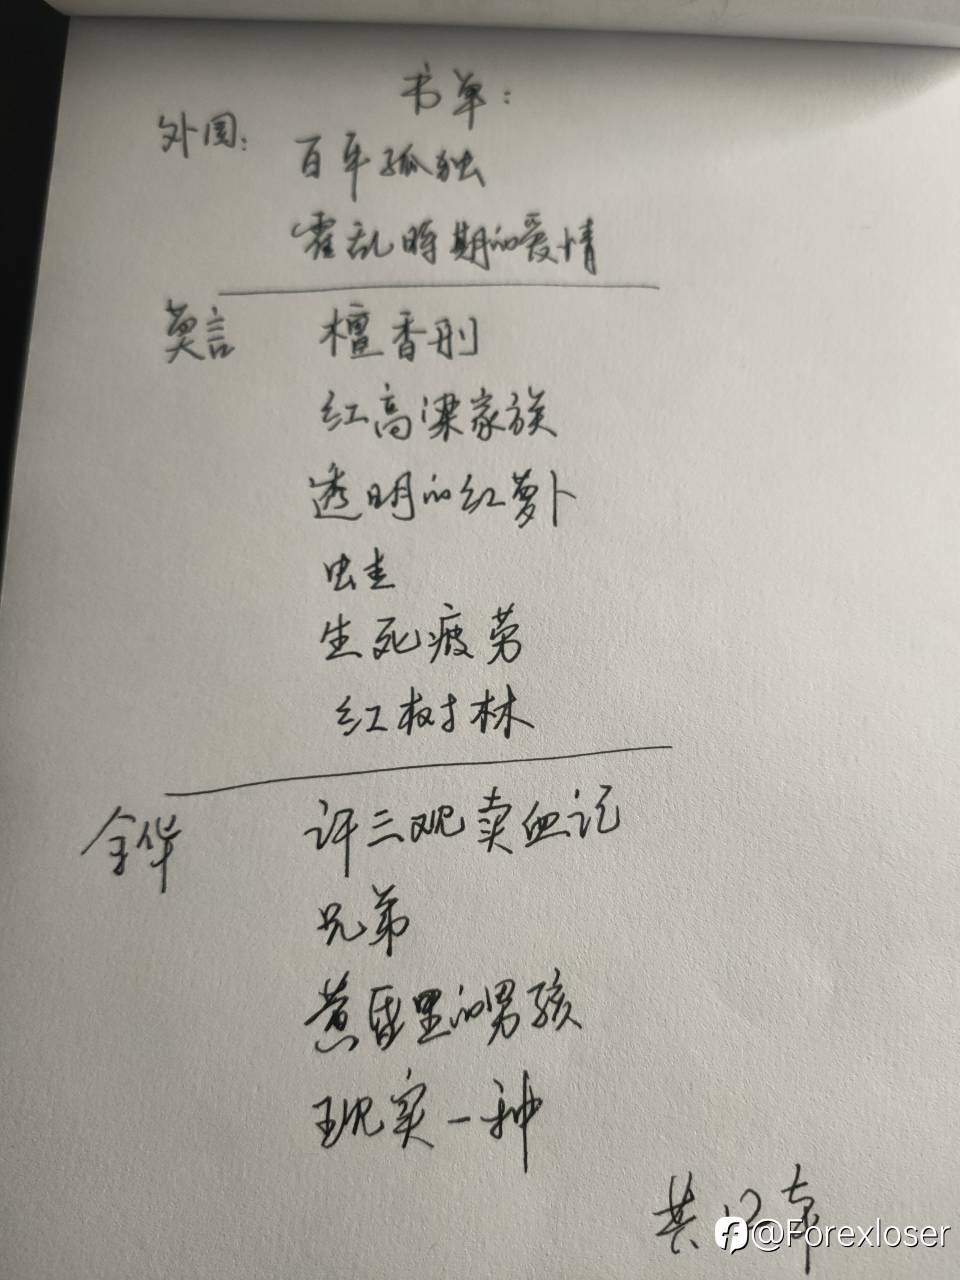 书单:
外国: 百年孤独
霍乱时期的爱情
莫言 檀香刑
红高粱家族
透明的红萝卜
蛙
生死疲劳
红树林
余华 许三观卖血记
兄弟
黄昏里的男孩
现实一种
共12本
@Forexloser